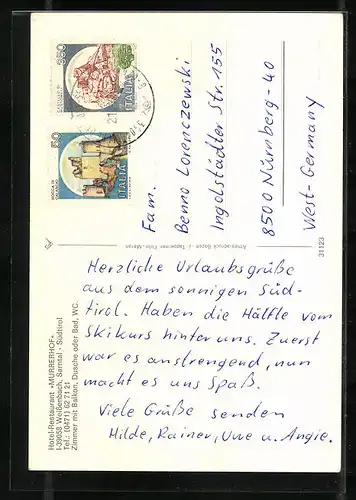 Herzliche Urlaubsgrüße
aus dem sonnigen Süd-
tirol. Haben die Hälfte vom
Skikurs hinter uns. Zuerst
war es anstrengend, nun
macht es uns Spaß.
Viele Grüße senden
Hilde, Rainer, Uwe u. Angie.
Fam.
Benno Lorenczewski
Ingolstädter Str. 155
8500 Nürnberg-40
West-Germany
Hotel-Restaurant »MURRERHOF«
I-39058 Weißenbach, Sarntal - Südtirol
Tel.: (0471) 62 71 21
Zimmer mit Balkon, Dusche oder Bad, WC.
31123
350
ITALIA
50
ROCCA DI
ITALIA